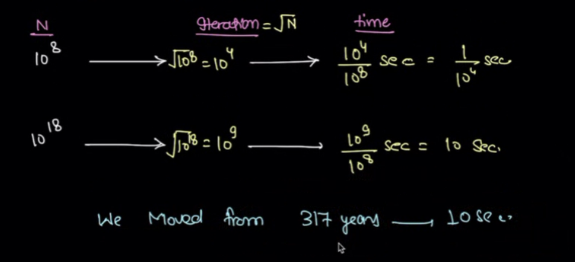 N Iteration = √N time
10^8 → √10^8 = 10^4 → 10^4/10^8 sec = 1/10^4 sec
10^18 → √10^18 = 10^9 — 10^9/10^8 sec = 10 sec.
We Moved from 317 years — 10 sec.